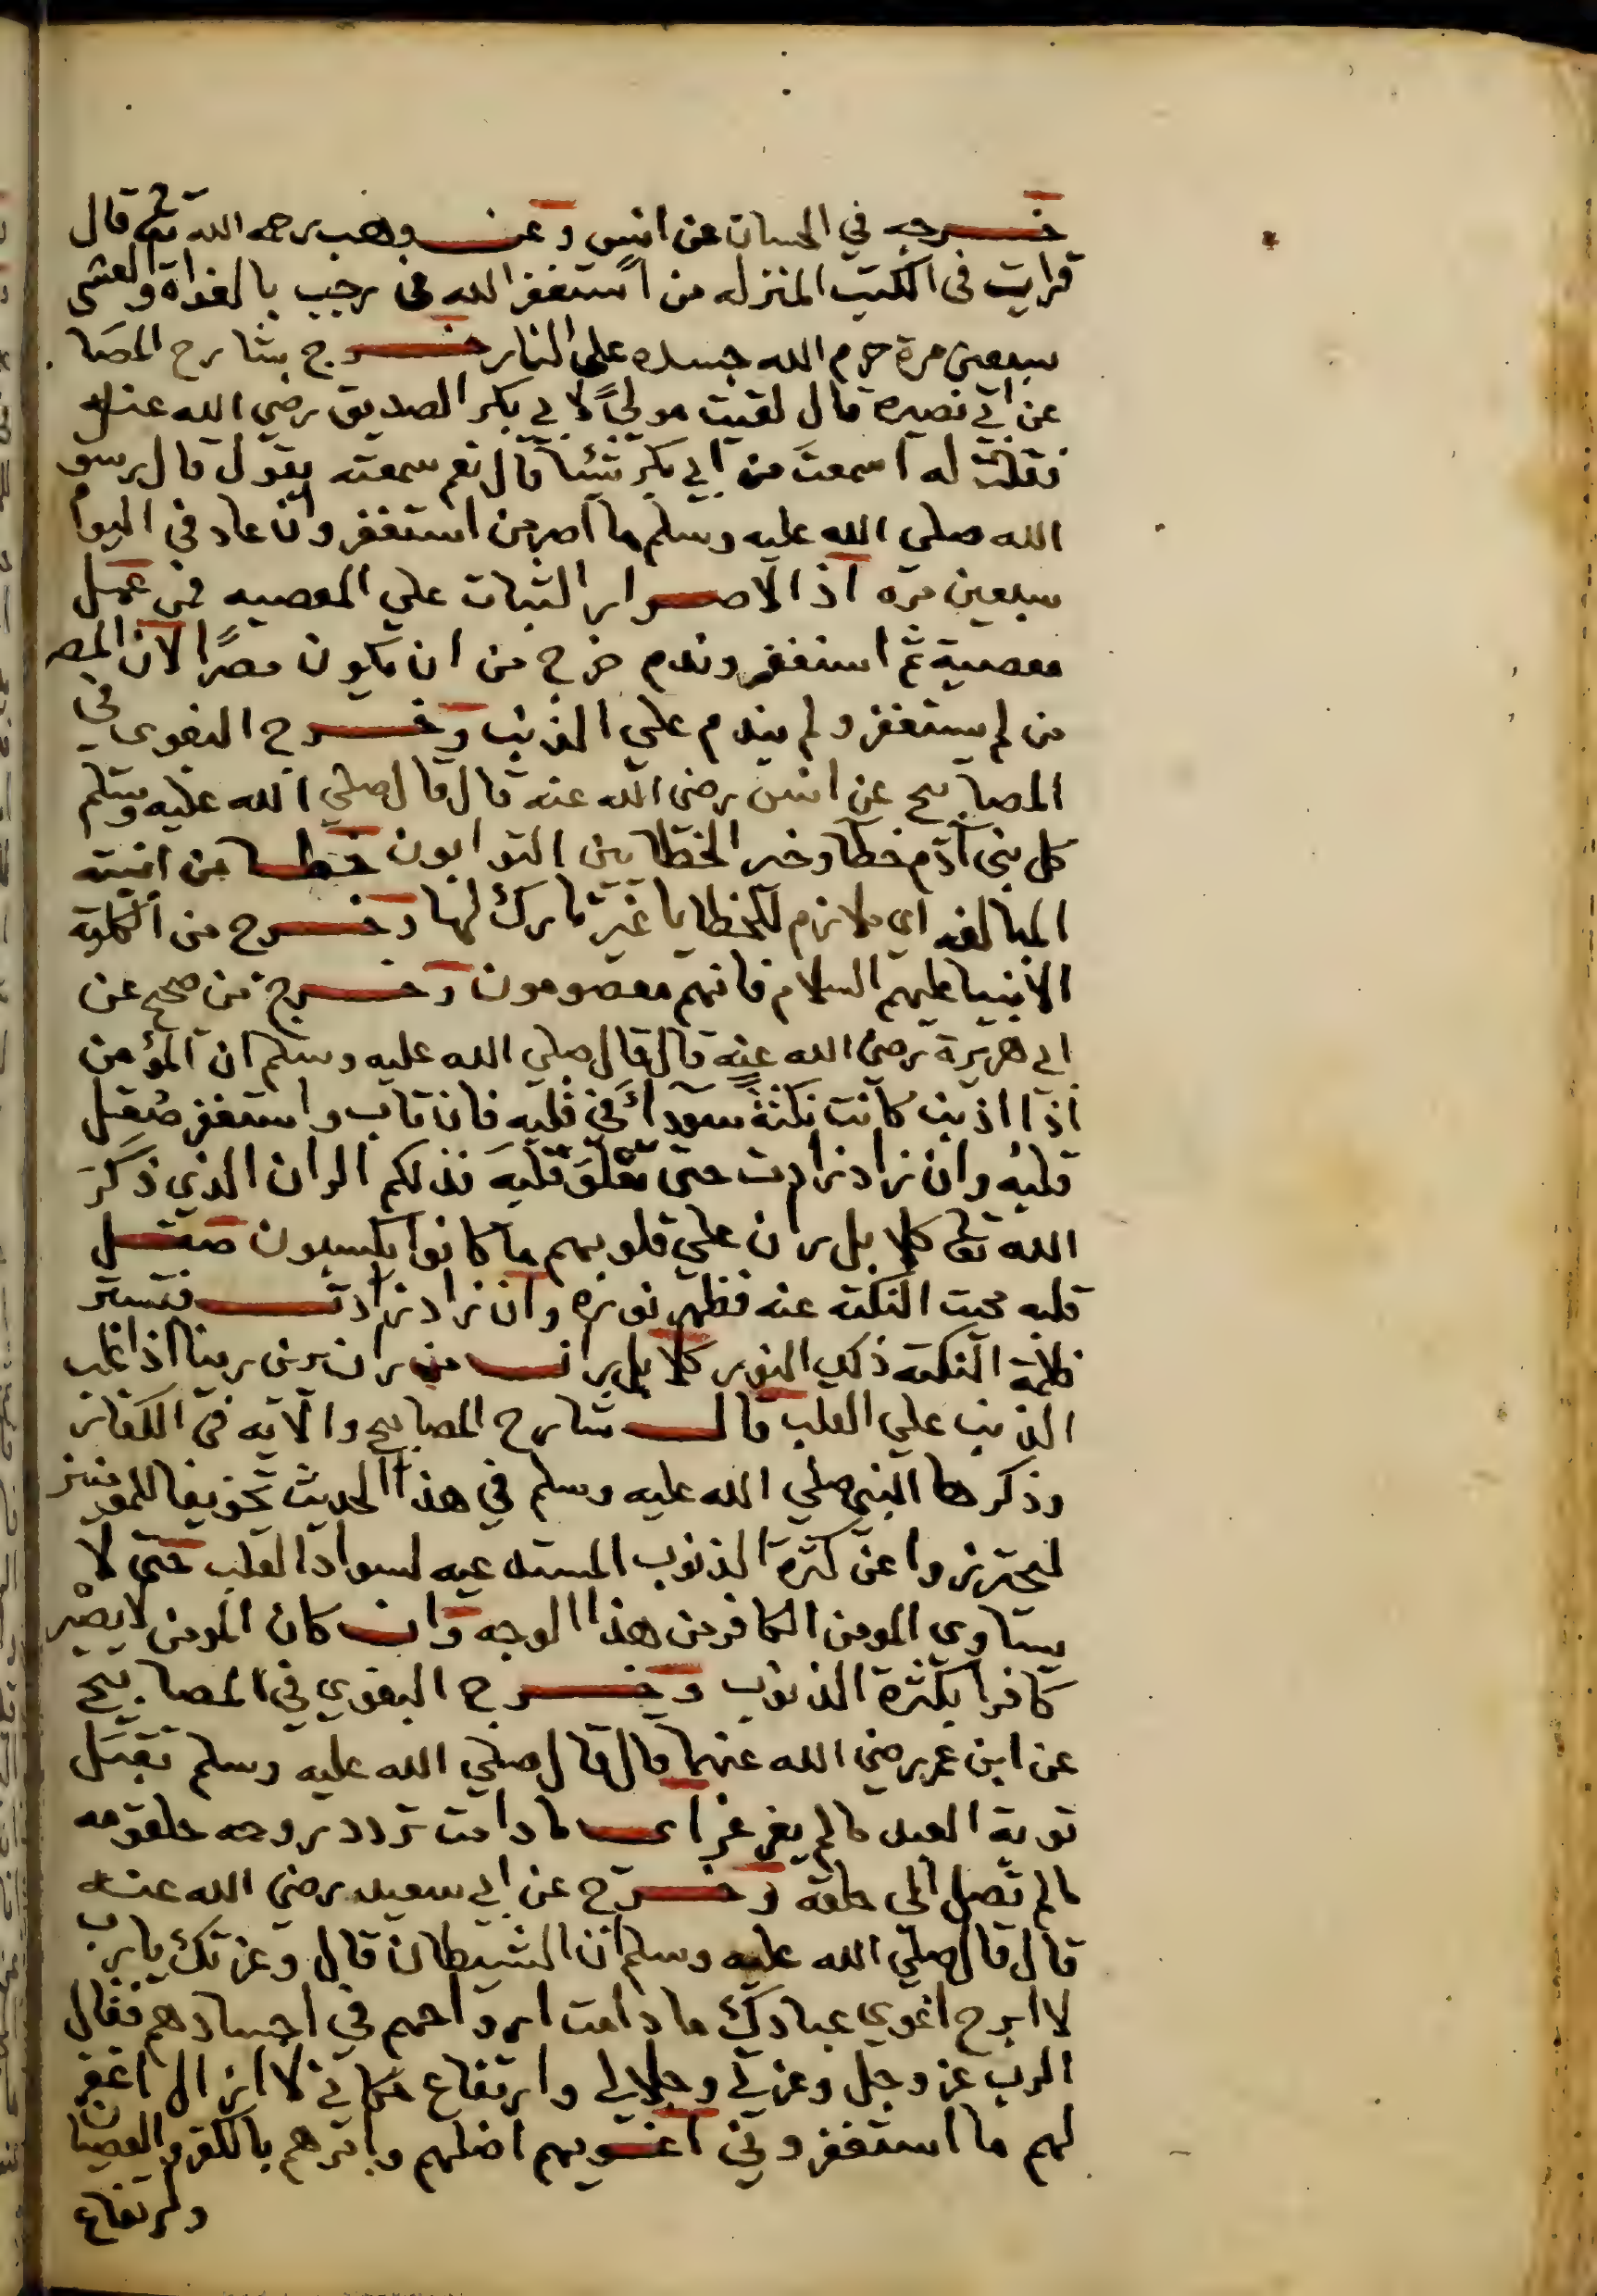 خرجه في الحسان عن انس وعن وهب رحمه الله تعالى قال
قرات فى الكتب المنزله من استغفر الله في رجب بالغداة والعشى
سبعين مرة حرم الله جسده على النار خرج شارح المصا
عن ابي نصيره قال لقيت مولىً لابي بكر الصديق رضي الله عنه
فقلت له اسمعتَ من ابي بكر شيئا قال نعم سمعته يقول قال رسو
الله صلي الله عليه وسلم ما اصر من استغفر وان عاد في اليوم
سبعين مره اذ الاصرار الثبات علي المعصيه فمن عمل
معصية ثم استغفر وندم خرج من ان يكون مصرًا لان المصر
من لم يستغفر ولم يندم علي الذنب وخرج البغوى في
المصابيح عن انس رضى الله عنه قال قال صلي الله عليه وسلم
كل بني آدم خطا وخير الخطايين التوابون خطا من ابنيته
المبالغه اي ملازم للخطايا غير تارك لها وخرج من الكلية
الانبيا عليهم السلام فانهم معصومون وخرج من صحيح عن
ابي هريرة رضي الله عنه قال قال صلي الله عليه وسلم ان المؤمن
اذا اذنب كانت نكتةً سوداءَ في قلبه فان تاب واستغفر صُقِل
قلبُه وان زاد زادت حتى تغلق قلبَه فذلكم الران الذي ذكرَ
الله تعالى كلا بل ران علي قلوبهم ما كانوا يكسبون صقل
قلبه محيت النكته عنه فظهر نوره وان زاد زادت فتستر
ظلمة النكته ذلك النور كلا بل ران من ران يرين رينا اذا غلب
الذنب علي القلب قال شارح المصابيح والآيه في الكفار
وذكرها النبي صلي الله عليه وسلم في هذا الحديث تخويفا للمومنين
ليحترزوا عن كثرة الذنوب المستدعيه لسواد القلب حتى لا
يساوي المومن الكافر من هذا الوجه وان كان المومن لا يصْير
كافرا بكثرة الذنوب وخرج البغوي في المصابيح
عن ابن عمر رضي الله عنهما قال قال صلي الله عليه وسلم تقبَل
توبة العبد ما لم يغرغر اى ما دامت تردد روحه حلقومه
ما لم تصل الى حلقه وخرج عن ابي سعيد رضي الله عنه
قال قال صلي الله عليه وسلم ان الشيطان قال وعزتك يا رب
لا ابرح اغوي عبادك ما دامت ارواحهم في اجسادهم فقال
الرب عز وجل وعزتي وجلالي وارتفاع مكاني لا ازال اغفر
لهم ما استغفروني اغويهم اضلهم وامرهم بالكفر والعصيان
وارتفاع